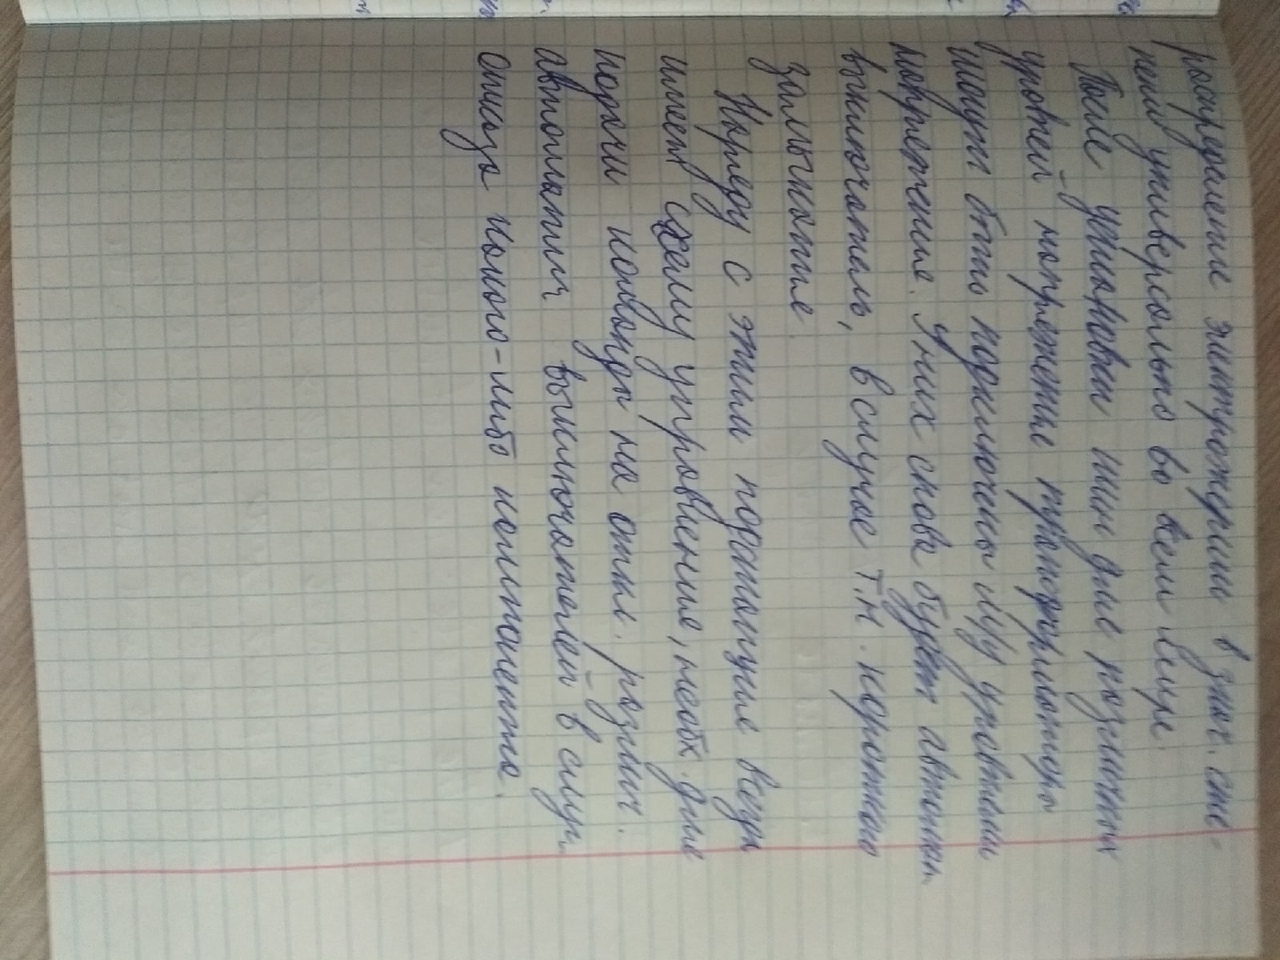 распределение электроэнергии в знач. сте-
пени универсально во всем мире.
После установки шин для различных
уровней напряжения трансформаторы
могут быть подключены м/у уровнями
напряжения. У них снова будет автомат.
выключатель, в случае т.н. короткого
замыкание.
Наряду с этим подстанция всегда
имеет схему управление, необх. для
подачи команды на откл. различ.
автоматич. выключателей в случ.
отказа какого-либо компонента.